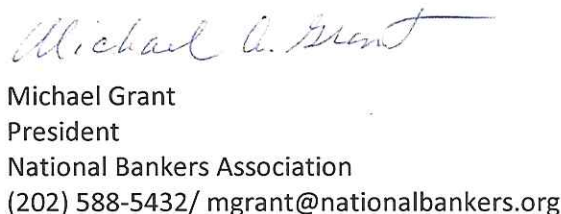 Michael A. Grant
Michael Grant
President
National Bankers Association
(202) 588-5432/ mgrant@nationalbankers.org